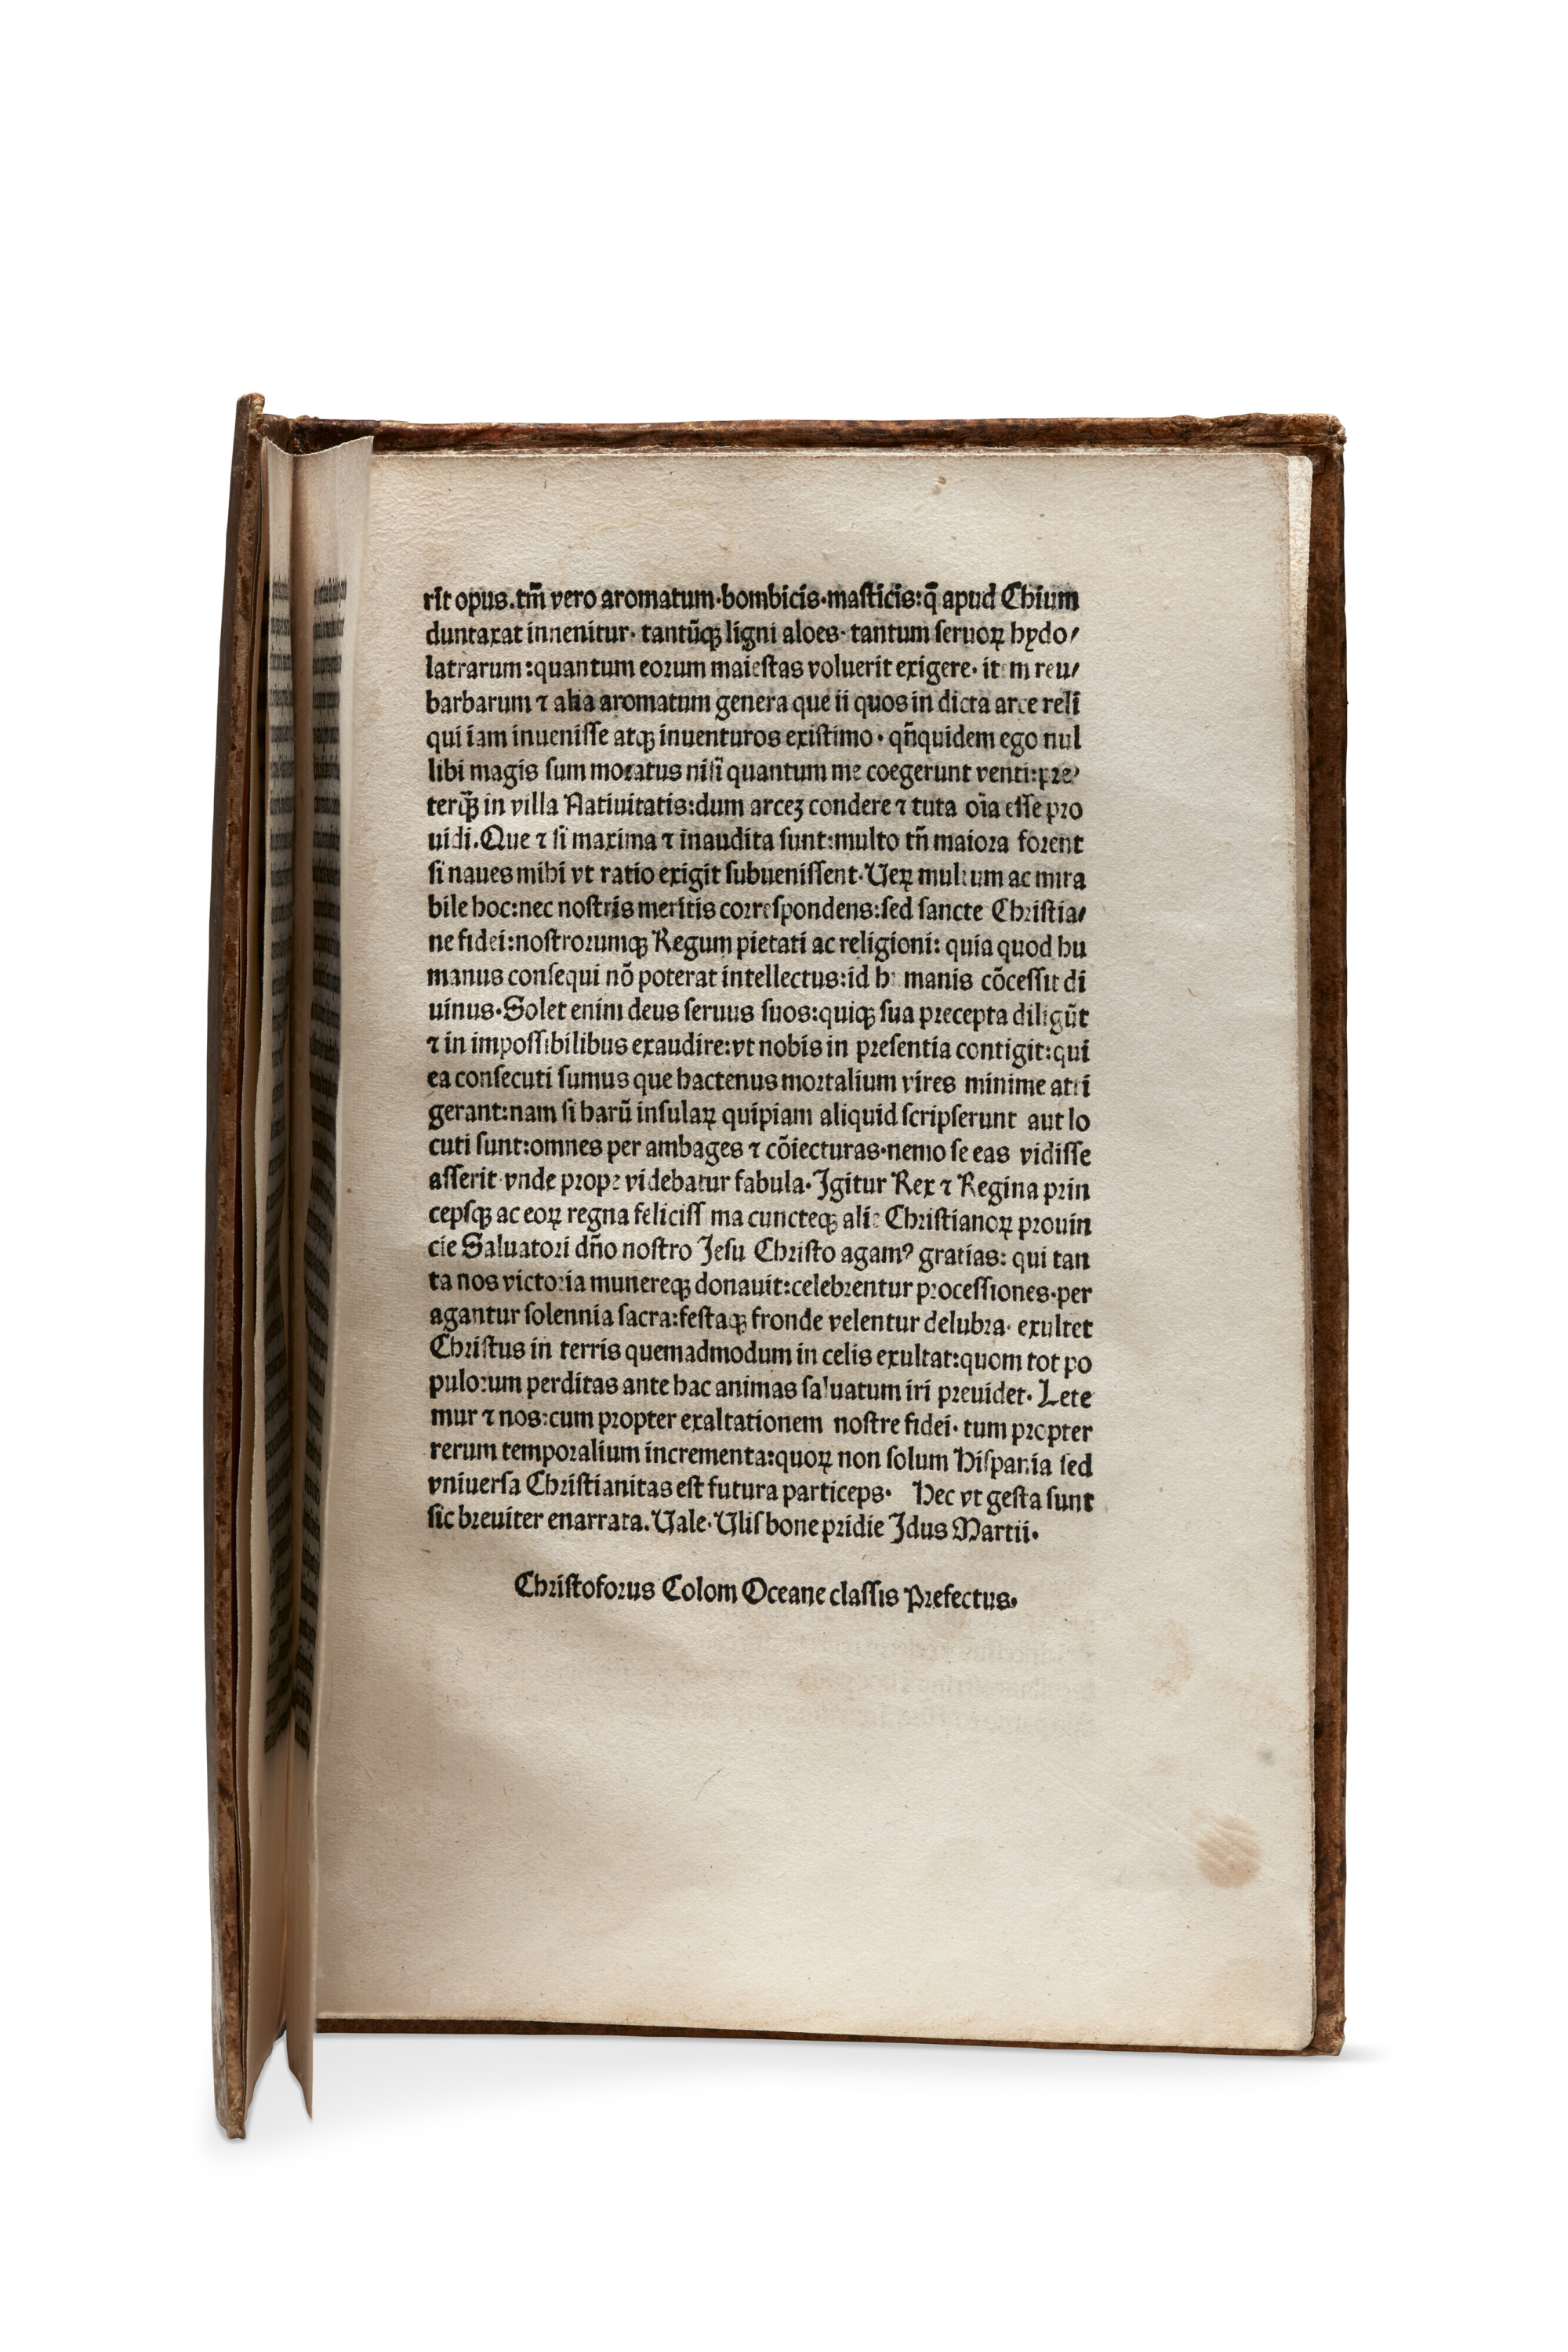 rit opus.tm̃ vero aromatum·bombicis·masticis:q̃ apud Chium
duntaxat inuenitur· tantũqꝫ ligni aloes· tantum seruoꝝ hydo/
latrarum:quantum eorum maiestas voluerit exigere· item reu/
barbarum ⁊ alia aromatum genera que ii quos in dicta arce reli
qui iam inuenisse atqꝫ inuenturos existimo· qñquidem ego nul
libi magis sum moratus nisi quantum me coegerunt venti:pre/
terqꝫ̃ in villa Natiuitatis:dum arceꝫ condere ⁊ tuta oĩa esse pro
uidi.Que ⁊ si maxima ⁊ inaudita sunt:multo tñ maiora forent
si naues mihi vt ratio exigit subuenissent.Ueꝝ multum ac mira
bile hoc:nec nostris meritis correspondens:sed sancte Christia/
ne fidei:nostrorumqꝫ Regum pietati ac religioni: quia quod hu
manus consequi nõ poterat intellectus:id humanis cõcessit di
uinus·Solet enim deus seruus suos:quiqꝫ sua precepta diligũt
⁊ in impossibilibus exaudire:vt nobis in presentia contigit:qui
ea consecuti sumus que hactenus mortalium vires minime atti
gerant:nam si harũ insulaꝝ quipiam aliquid scripserunt aut lo
cuti sunt:omnes per ambages ⁊ cõiecturas·nemo se eas vidisse
asserit vnde prope videbatur fabula· Igitur Rex ⁊ Regina prin
cepsqꝫ ac eoꝝ regna felicissima cuncteqꝫ alie Christianoꝝ prouin
cie Saluatori dño nostro Jesu Christo agamꝰ gratias: qui tan
ta nos victoria munereqꝫ donauit:celebrentur processiones·per
agantur solennia sacra:festaqꝫ fronde velentur delubra· exultet
Christus in terris quemadmodum in celis exultat:quom tot po
pulorum perditas ante hac animas saluatum iri preuidet· Lete
mur ⁊ nos:cum propter exaltationem nostre fidei· tum propter
rerum temporalium incrementa:quoꝝ non solum Hispania sed
vniuersa Christianitas est futura particeps· Hec vt gesta sunt
sic breuiter enarrata. Uale· Ulisbone pridie Idus Martii·
Christoforus Colom Oceane classis Prefectus·